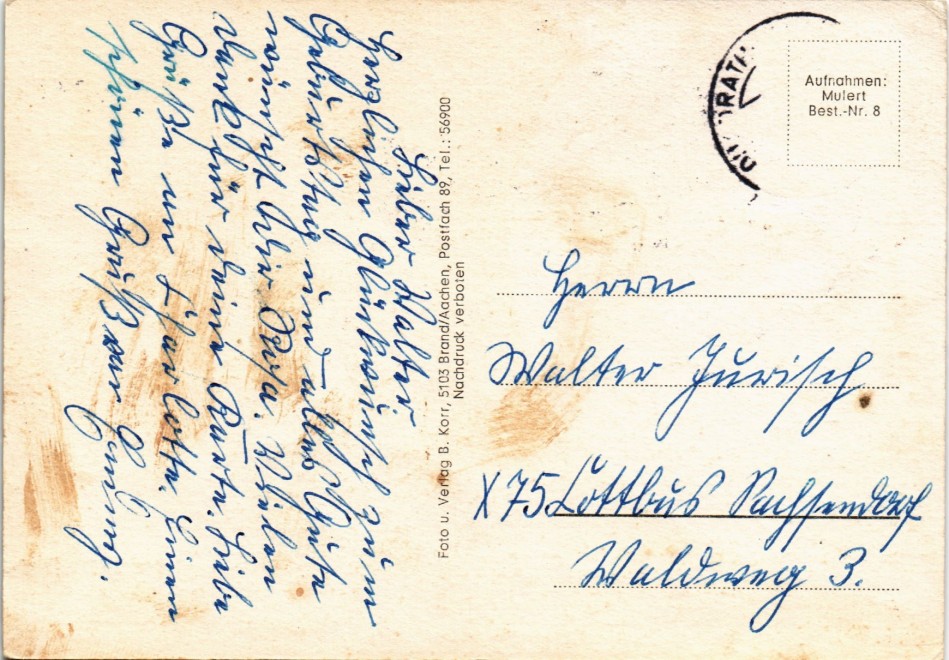 Lieber Walter.
Herzlichen Glückwunsch zum
Geburtstag und alles Gute
wünscht Dir Vielen
Dank für deine Karte. Liebe
Grüße an Einen
schönen Gruß von
Foto u. Verlag B. Korr, 5103 Brand/Aachen, Postfach 89, Tel.: 56900
Nachdruck verboten
Aufnahmen:
Mulert
Best.-Nr. 8
Herrn
Walter Jurisch
X75 Cottbus Sachsendorf
Waldweg 3.